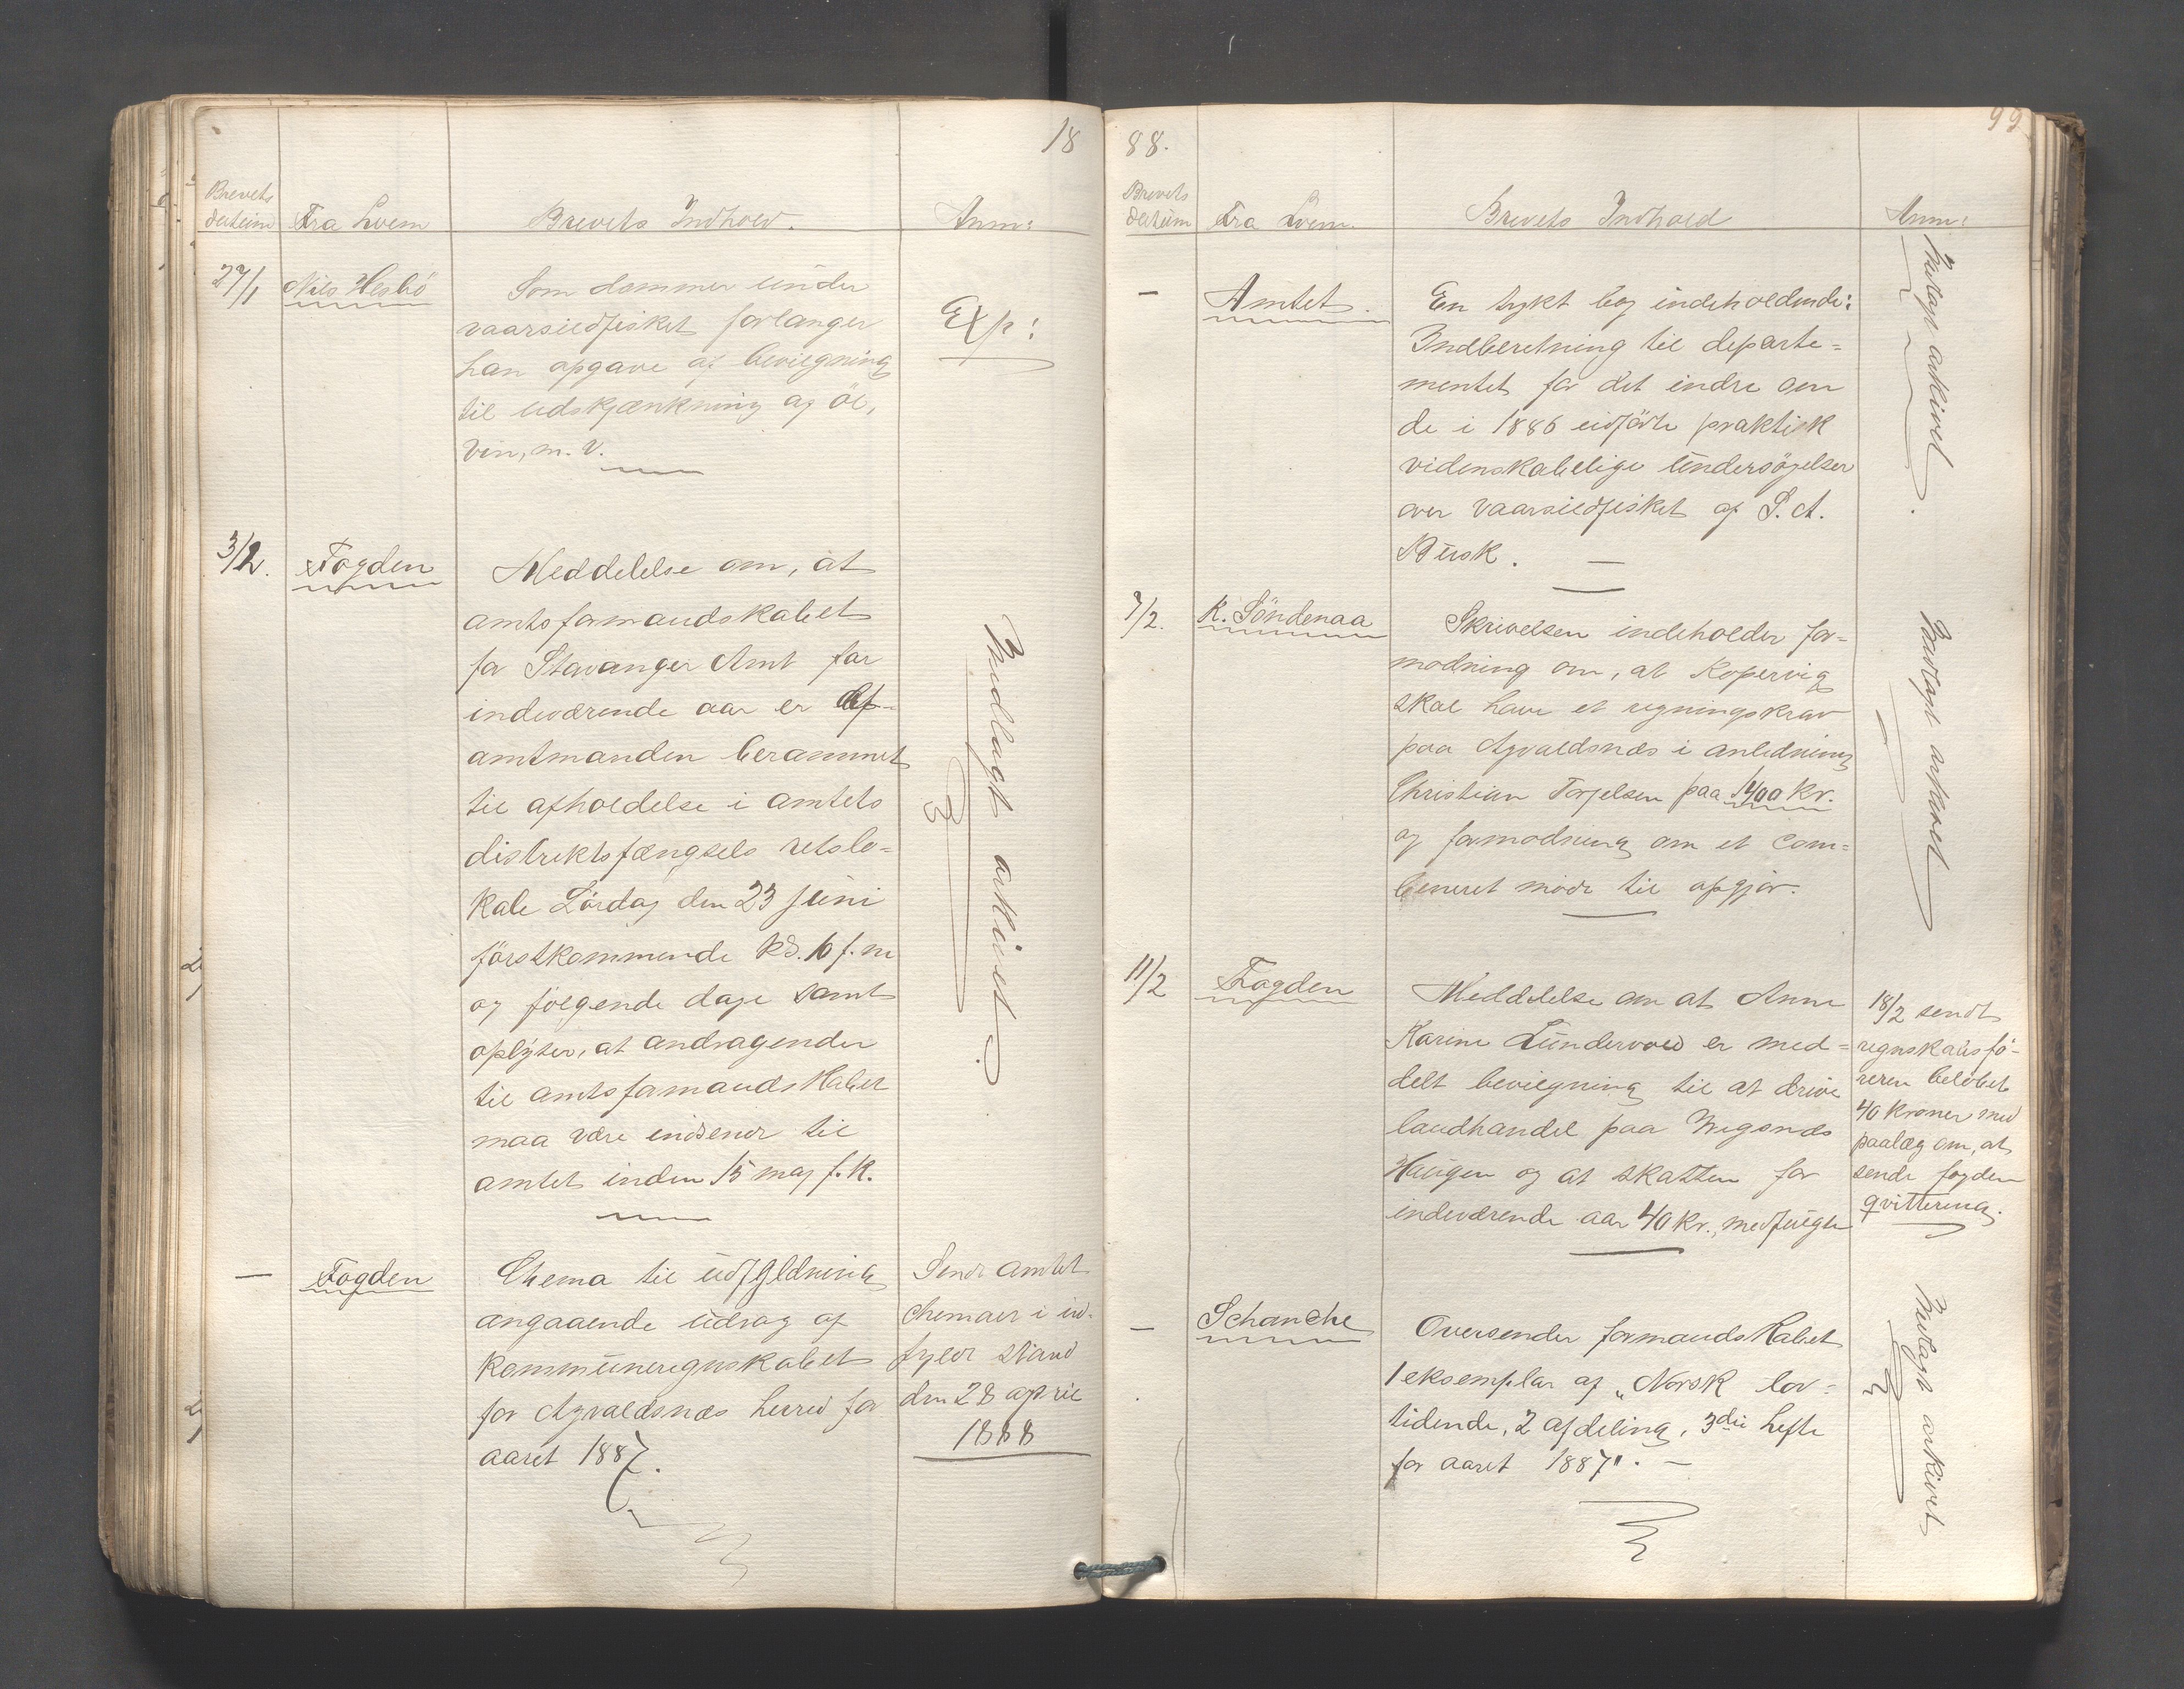 18
Brevets
datum
Fra hvem
Brevets Indhold.
Anm:
27/1
Nils Hesbö
Som dommer under
vaarsildfisket forlanger
han opgave af bevilgning
til udskjænkning af öl,
vin, m. v.
Exp:
3/2.
Fogden
Meddelelse om, at
amtsformandskabet
for Stavanger Amt for
indeværende aar er af
amtmanden berammet
til afholdelse i amtets
distriktsfængsels retslo=
kale Lördag den 23 juni
förstkommende kl. 10 f. m
og fölgende dage samt
oplyser, at andragender
til amtsformandskabet
maa være indsendt til
amtet inden 15 maj f. k.
Henlagt arkivet.
—
Fogden
Chema til udfyldning
angaaende udrag af
kommuneregnskabet
for Agvaldsnæs herred for
aaret 1887.
Sendt amtet
chemaer i ud-
fyldt stand
den 28 april
1888
88.
99
Brevets
datum
Fra hvem.
Brevets Indhold
Anm:
—
Amtet.
En tykt bog indeholdende:
Indberetning til departe=
mentet for det indre om
de i 1886 udförte praktisk
videnskabelige undersögelser
over vaarsildfisket af S. A.
Busk. —
arkivet.
7/2.
K. Söndenaa
Skrivelsen indeholder for=
modning om, at Kopervig
skal have et regningskrav
paa Agvaldsnæs i anledning
Christian Torjelsen paa 1400 kr.
og formodning om et com=
beneret möde til opgjör.
arkivet
11/2
Fogden
Meddelelse om at Anne
Karine Lundervold er med=
delt bevilgning til at drive
landhandel paa
Haugen og at skatten for
indeværende aar 40 kr., medfulgte
18/2 sendt
regnskabsfö-
reren belöbet
40 kroner med
paalæg om, at
sende fogden
qvittering.
—
Schanche
Oversender formandskabet
1 eksemplar af „Norsk lov=
tidende, 2 afdeling, 3die hefte
for aaret 1887". —
arkivet